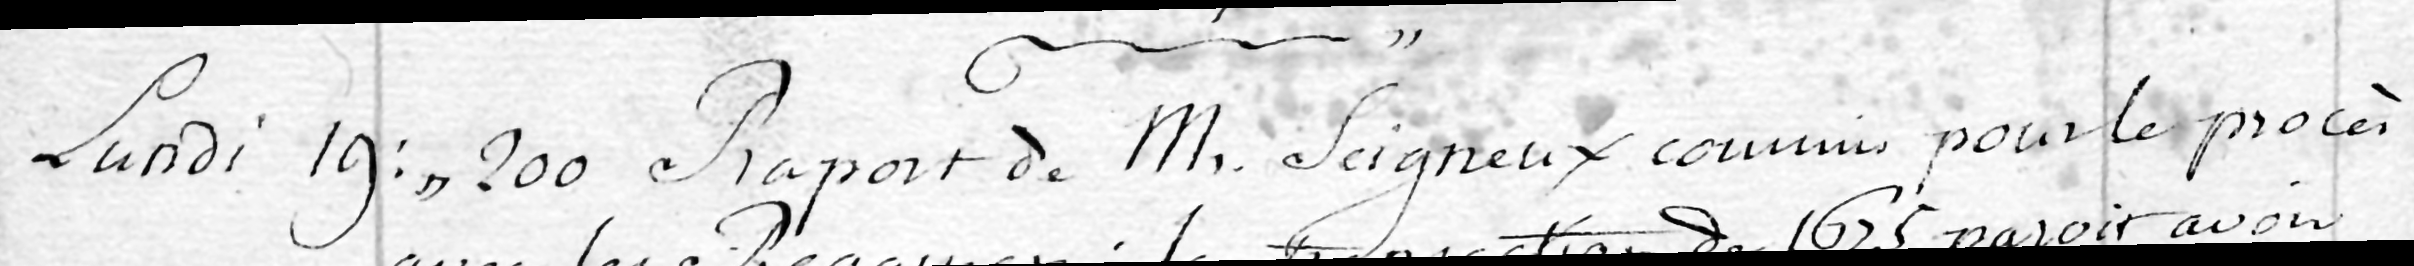 Lundi 19: „ 200 Raport de Mr. Seigneux commis pour le procès
la transaction de 1675 paroit avoir